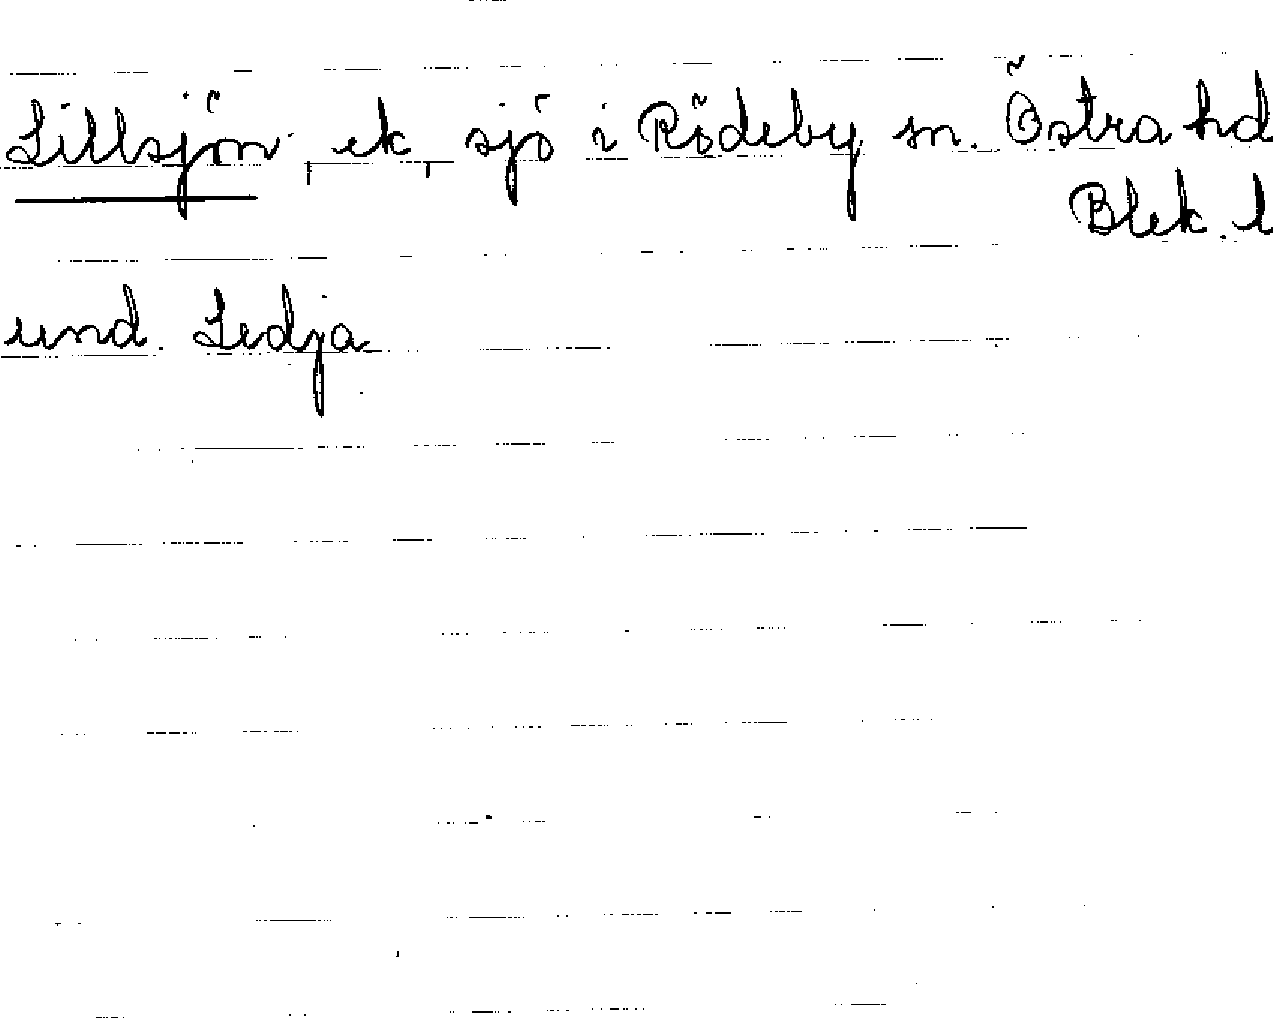 Lillsjön, ek, sjö i Rödeby sn. Östra hd
Blek. l
und. Ledja